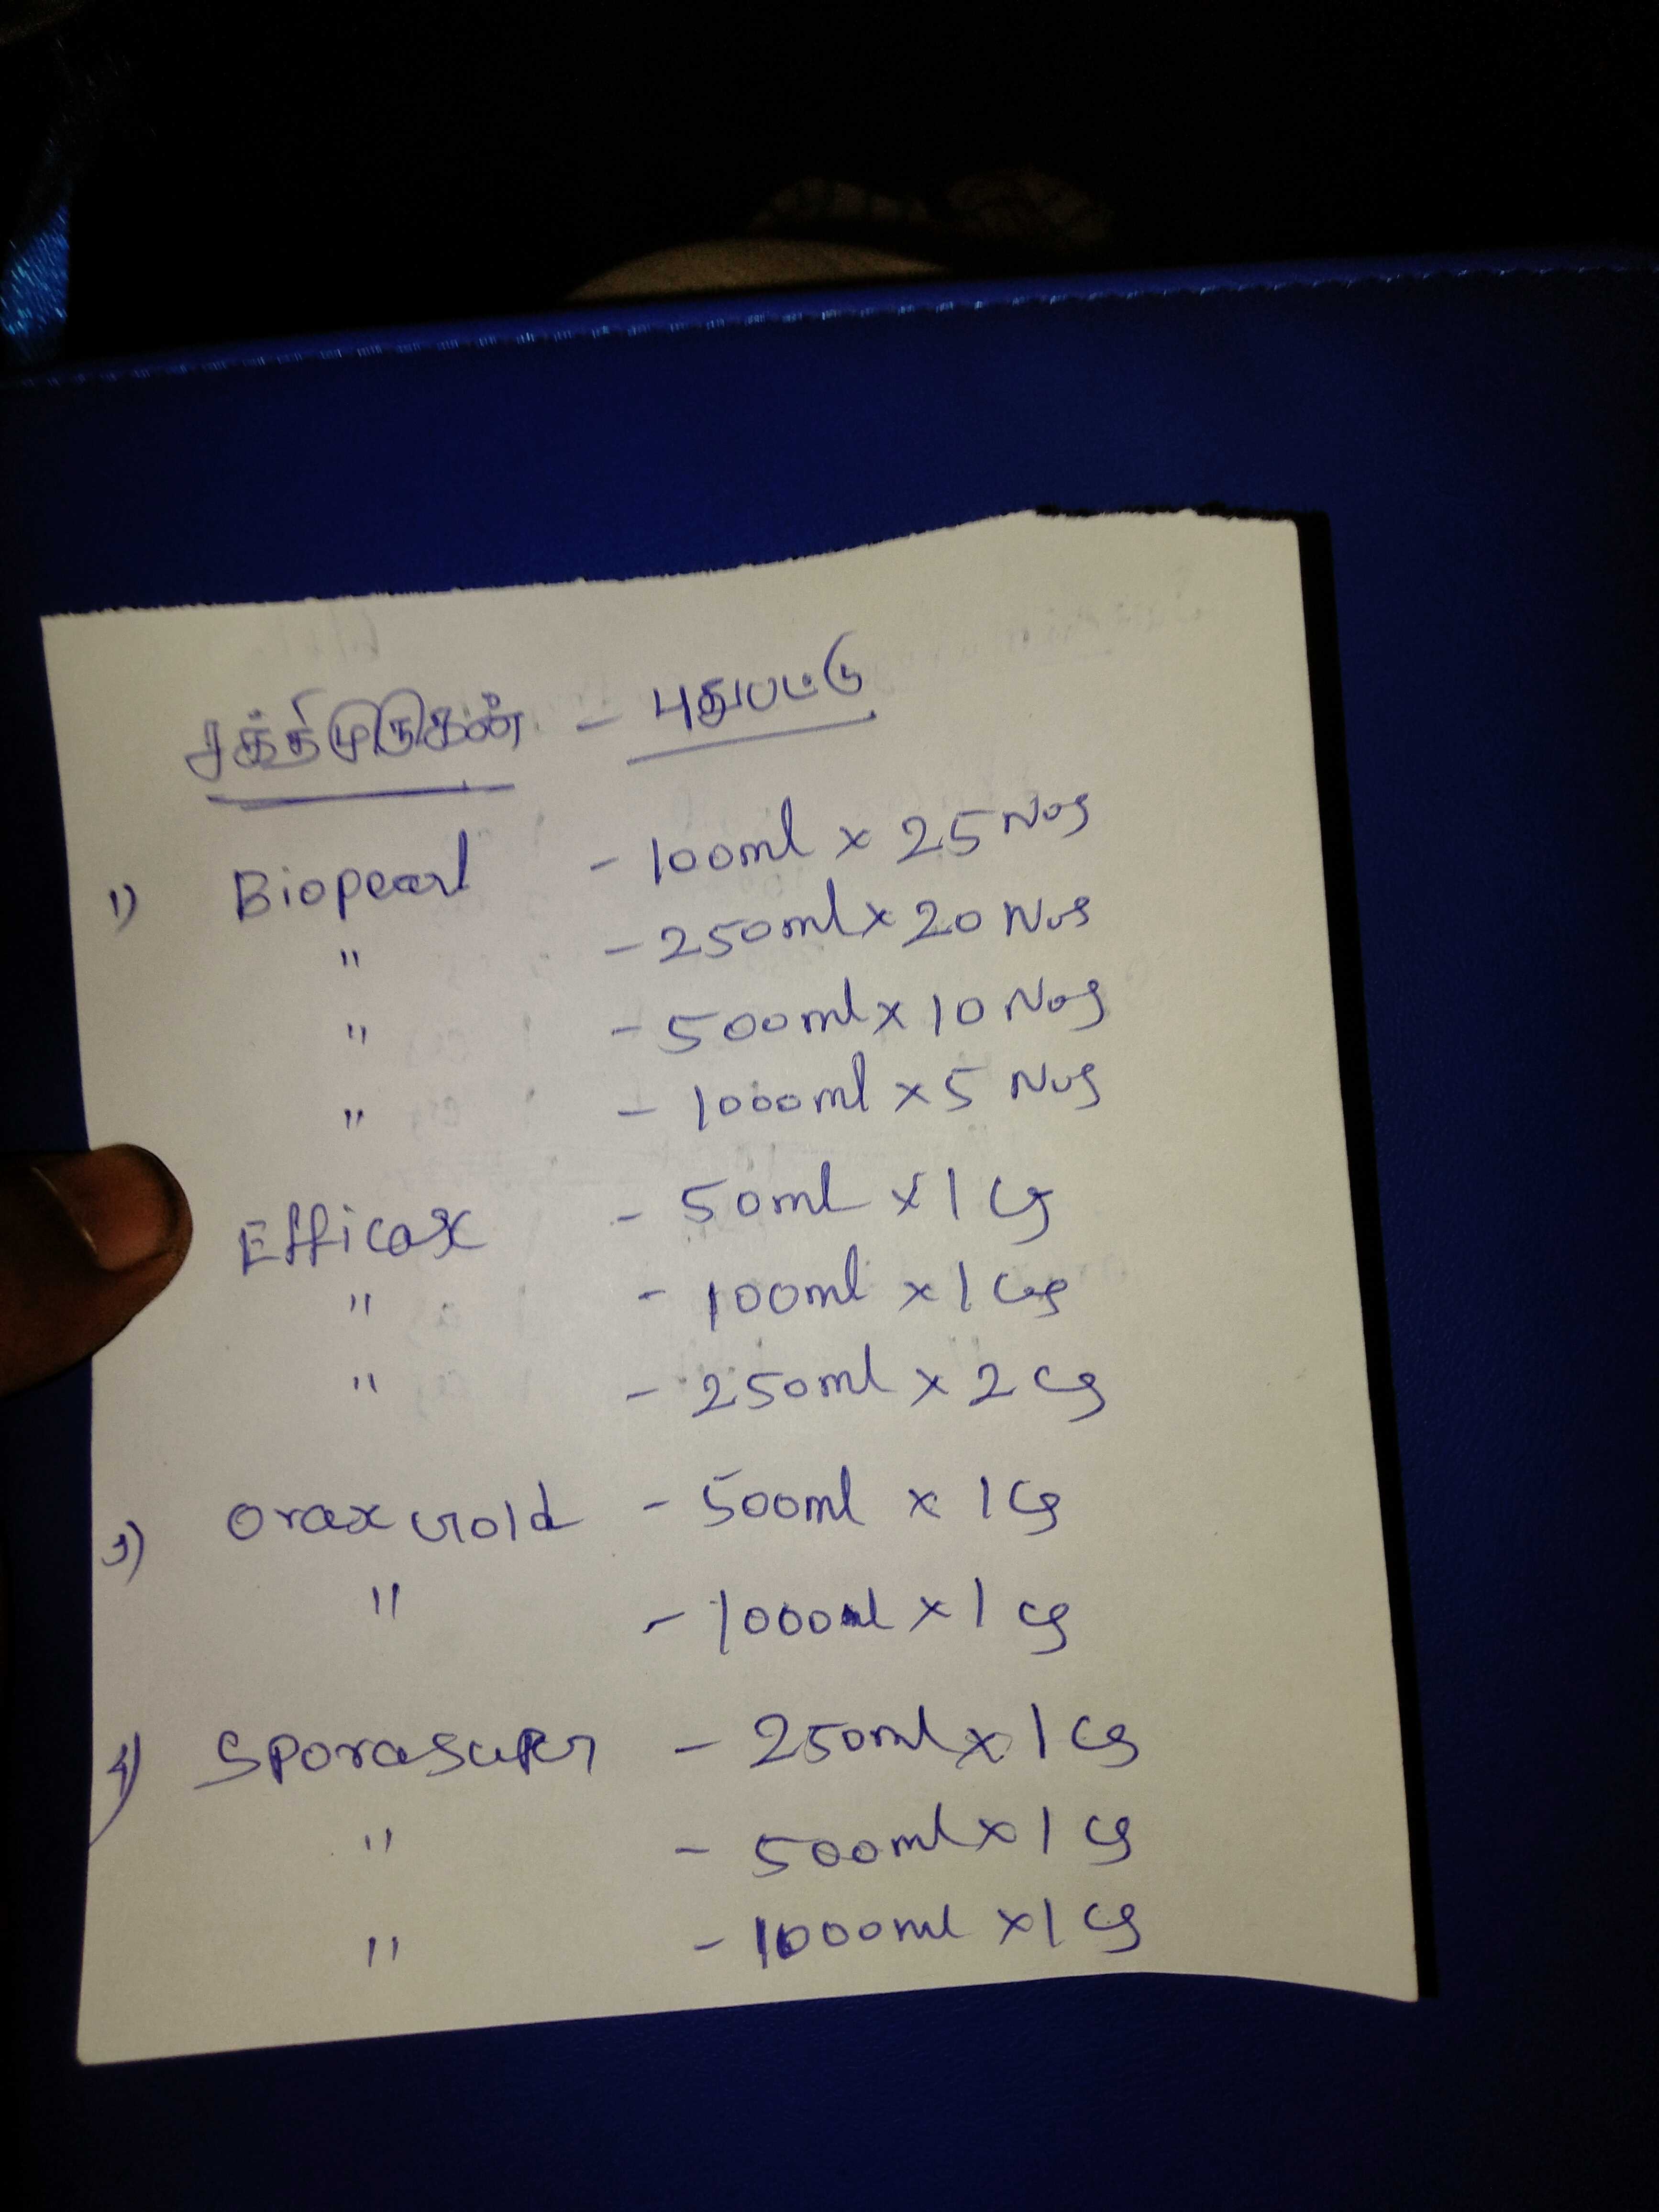 சக்திமுருகன் - புதுபட்டு
1) Biopearl - 100ml x 25 Nos
" - 250ml x 20 Nos
" - 500ml x 10 Nos
" - 1000ml x 5 Nos
Efficax - 50ml x 1 Cs
" - 100ml x 1 Cs
" - 250ml x 2 Cs
3) Orax Gold - 500ml x 1 Cs
" - 1000ml x 1 Cs
4) Sporasuper - 250ml x 1 Cs
" - 500ml x 1 Cs
" - 1000ml x 1 Cs